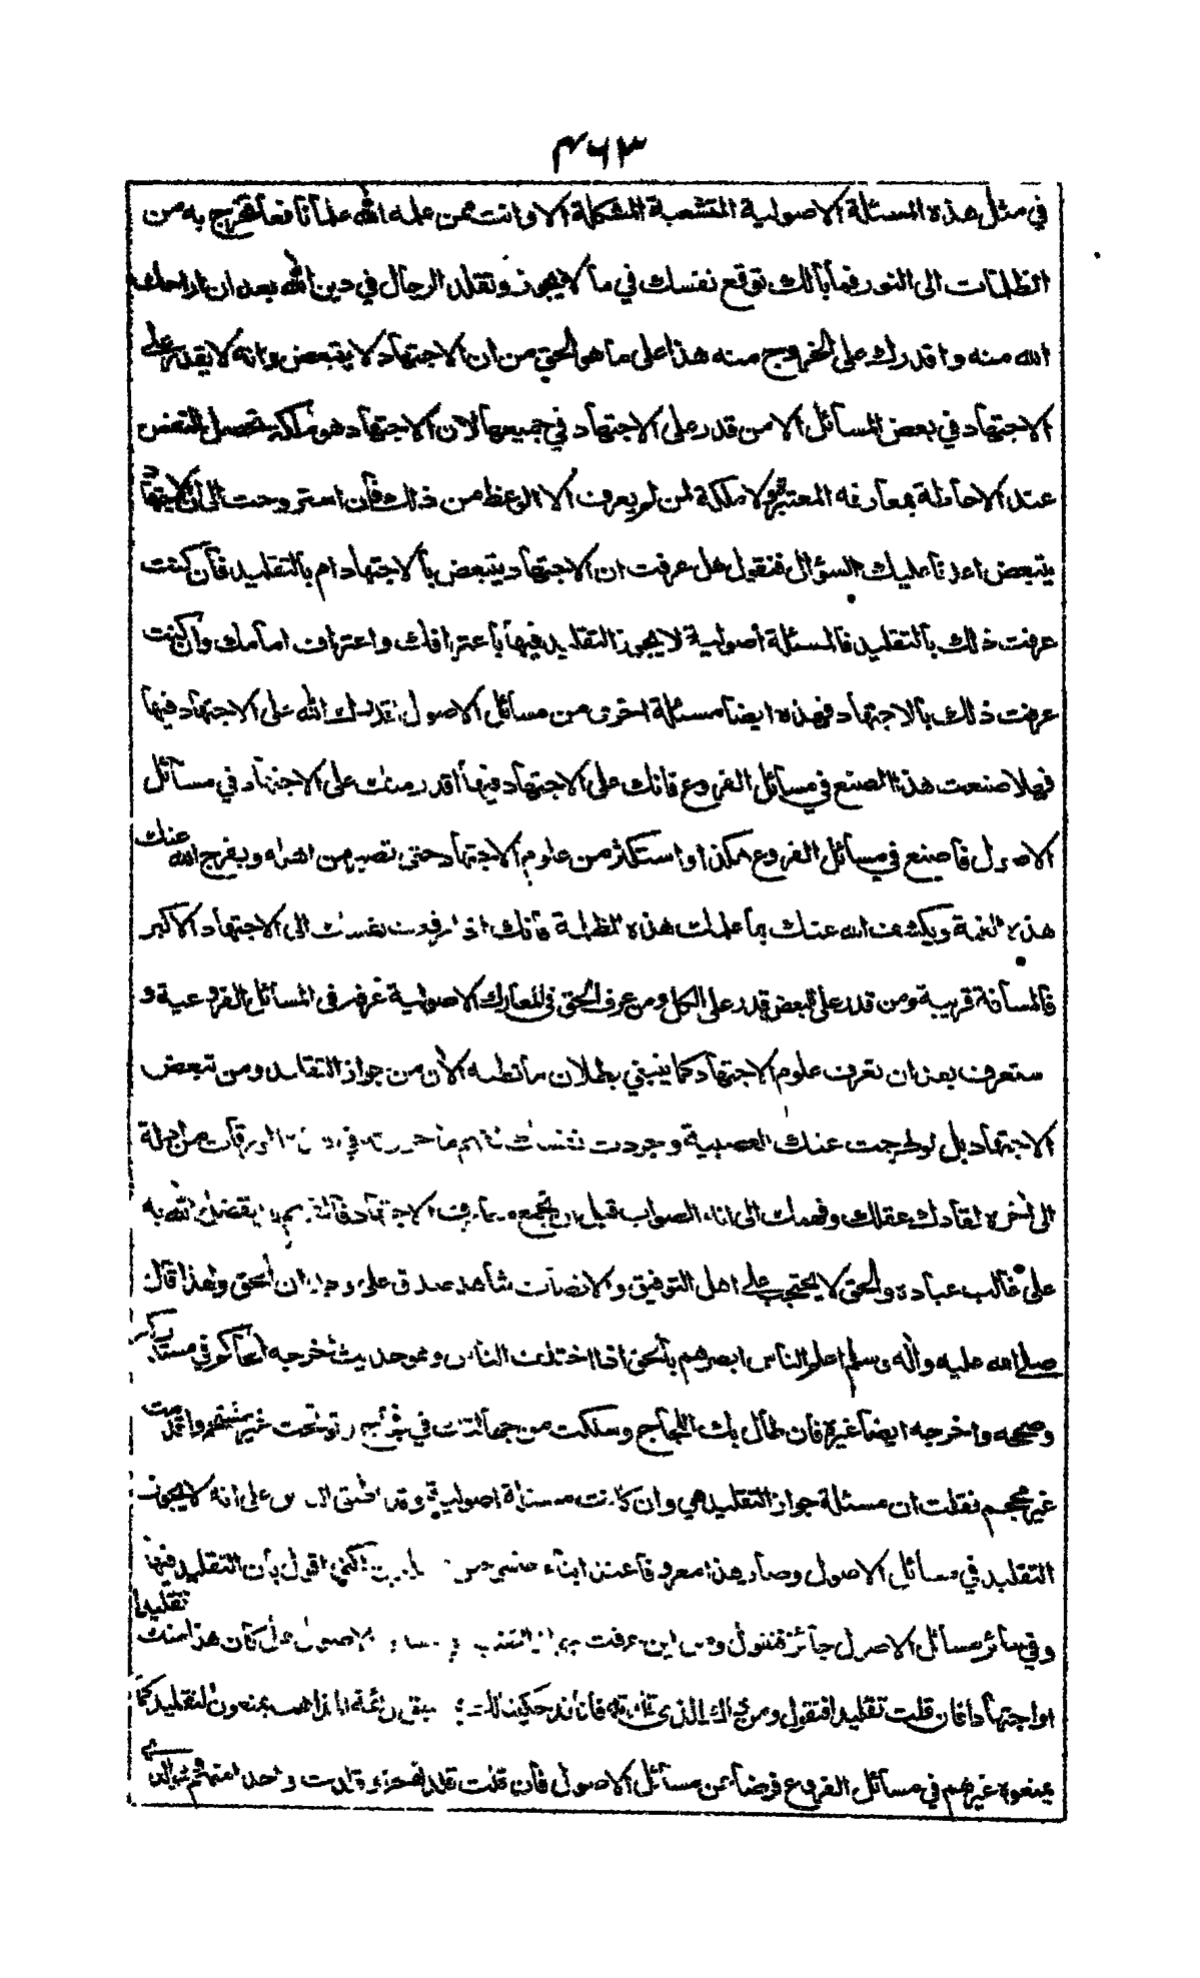 ٤٦٣
في مثل هذه المسئلة الاصولية المتشعبة المشكلة الا وانت ممن علمه الله علما نافعا تخرج به من
الظلمات الى النور فما بالك توقع نفسك في ما لا يجوز وتقلد الرجال في دين الله بعد ان اراحك
الله منه واقدرك على الخروج منه هذا على ما هو الحق من ان الاجتهاد لا يتبعض وانه لا يقدر على
الاجتهاد في بعض المسائل الا من قدر على الاجتهاد في جميعها لان الاجتهاد هو ملكة تحصل للنفس
عند الاحاطة بمعارفه المعتبرة ولا ملكة لمن لم يعرف الا البعض من ذلك فان استروحت الى ان الاجتهاد
يتبعض اعدنا عليك السؤال فنقول هل عرفت ان الاجتهاد يتبعض بالاجتهاد ام بالتقليد فان كنت
عرفت ذلك بالتقليد فالمسئلة أصولية لا يجوز التقليد فيها باعترافك واعتراف امامك وان كنت
عرفت ذلك بالاجتهاد فهذه ايضا مسئلة اخرى من مسائل الاصول اقدرك الله على الاجتهاد فيها
فهلا صنعت هذا الصنع في مسائل الفروع فانك على الاجتهاد فيها اقدر منك على الاجتهاد في مسائل
الاصول فاصنع في مسائل الفروع هكذا واستكثر من علوم الاجتهاد حتى تصير من اهله ويفرج الله عنك
هذه الغمة ويكشف الله عنك بما علمك هذه الظلمة فانك اذا رفعت نفسك الى الاجتهاد الاكبر
فالمسافة قريبة ومن قدر على البعض قدر على الكل ومن عرف الحق في المعارك الاصولية عرفه في المسائل الفروعية و
ستعرف بعد ان تعرف علوم الاجتهاد كما ينبغي بطلان ما تظنه الآن من جواز التقليد ومن تبعض
الاجتهاد بل لو طرحت عنك العصبية وجردت نفسك لفهم ما حررته في هذه الورقات من اوله
الى اخره لقادك عقلك وفهمك الى انه الصواب قبل ان تجمع معارف الاجتهاد فالفهم قد تفضل الله به
على غالب عباده والحق لا يحتجب على اهل التوفيق والانصاف شاهد صدق على وجدان الحق ولهذا قال
صلى الله عليه وآله وسلم اعلم الناس ابصرهم بالحق اذا اختلف الناس وهو حديث اخرجه الحاكم في مستدركه
وصححه واخرجه ايضا غيره فان طال بك اللجاج وسلكت من جهالتك في فجاج وتوقحت غير محتشم واقدمت
غير محجم فقلت ان مسئلة جواز التقليد هي وان كانت مسئلة اصولية وقد اطبق الناس على انه لا يجوز
التقليد في مسائل الاصول وصار هذا معروفا عند ابناء جنسي من المقلدين لكني اقول بان التقليد فيها
وفي سائر مسائل الاصول جائز فنقول ومن اين عرفت جواز التقليد في مسائل الاصول هل كان هذا منك تقليدا
او اجتهادا فان قلت تقليدا فنقول ومن ذاك الذي قلدته فانا قد حكينا لك فيما سبق ان ائمة المذاهب يمنعون التقليد كما
يمنعه غيرهم في مسائل الفروع فضلا عن مسائل الاصول فان قلت قلدتهم او قلدت واحدا منهم